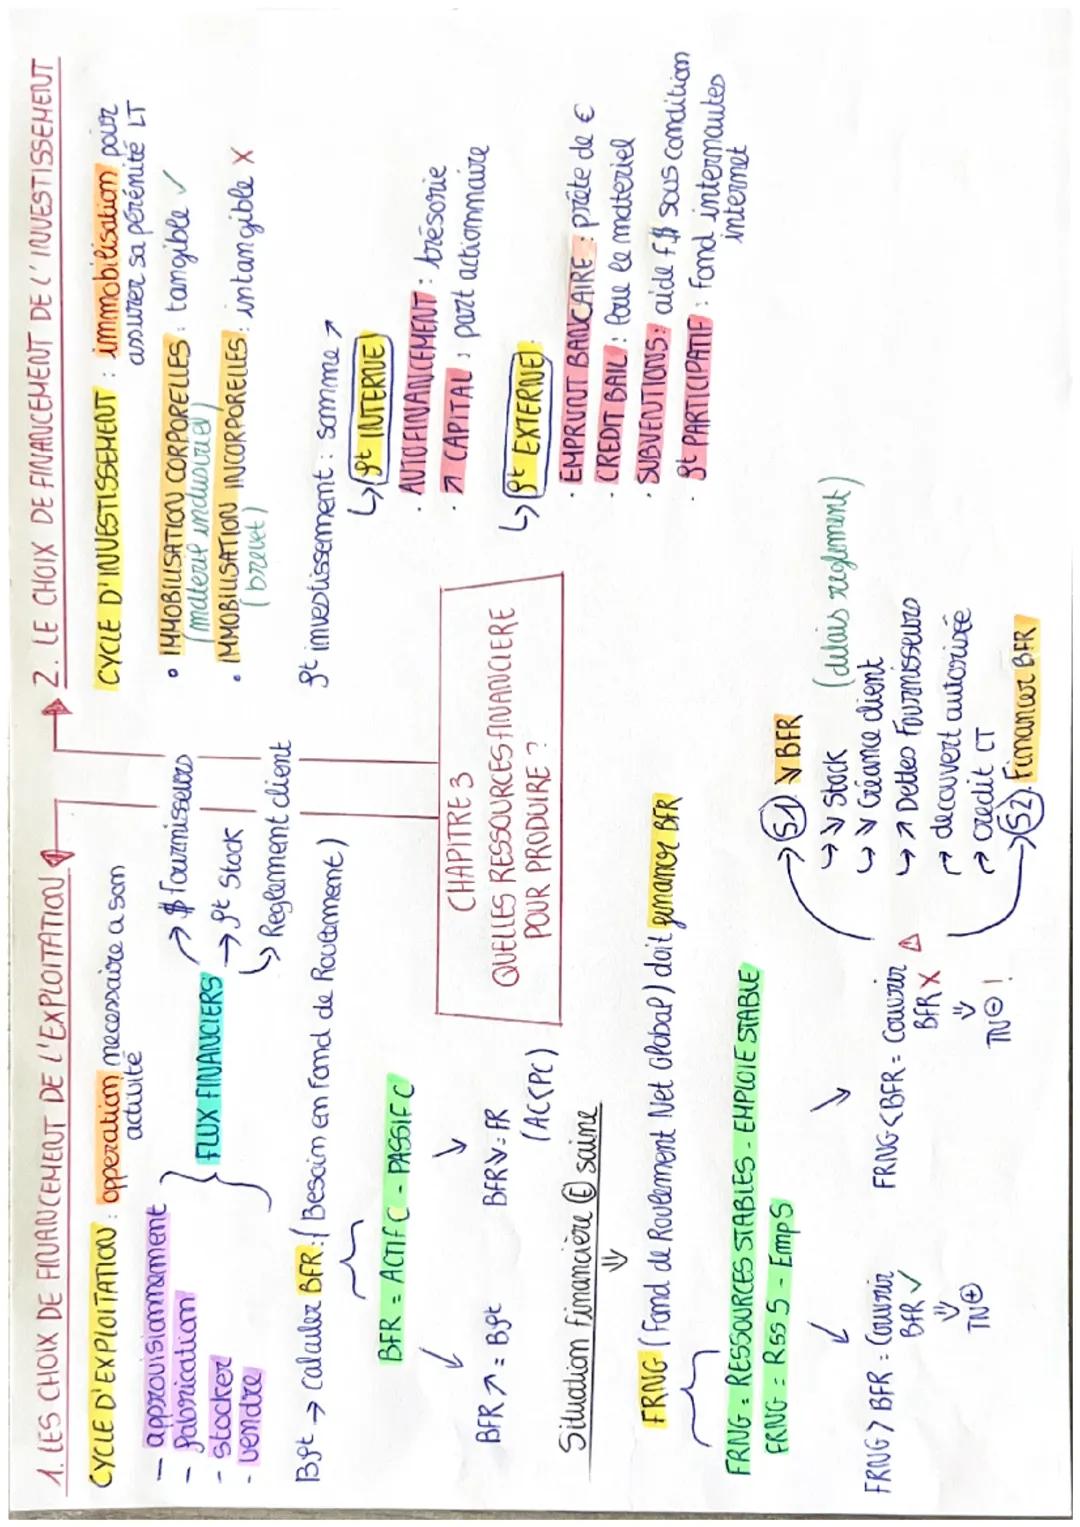 1. LES CHOIX DE FINANCEMENT DE L'EXPLOITATION
CYCLE D'EXPLOITATION : opperation necessaire a son
activité
- approvisionnement
- fabrication
- stocker
- vendre
FLUX FINANCIERS
→ $ fournisseurs
→ ft Stock
↳ Reglement client
Bft → calculer BFR : (Besoin en Fond de Roulement)
BFR = ACTIF C - PASSIF C
BFR ↗ = Bft
BFR ↘ = FR
(AC<PC)
Situation financière Ⓔ saine
⇓
FRNG (Fond de Roulement Net Global) doit financer BFR
FRNG = RESSOURCES STABLES - EMPLOIE STABLE
FRNG = Rss S - Emp S
FRNG > BFR = Couvrir
BFR ✓
⇓
TN⊕
FRNG < BFR = Couvrir ⚠
BFR X
⇓
TN⊖ !
→ S1. ↘ BFR
↳ ↘ Stock
↳ ↘ Créance client (delais reglement)
↳ ↗ Dettes Fournisseurs
decouvert autorisé
credit CT
→ S2. Financer BFR
CHAPITRE 3
QUELLES RESSOURCES FINANCIERE
POUR PRODUIRE ?
2. LE CHOIX DE FINANCEMENT DE L'INVESTISSEMENT
CYCLE D'INVESTISSEMENT : immobilisation pour
assurer sa pérénité LT
• IMMOBILISATION CORPORELLES : tangible ✓
(materiel industriel)
• IMMOBILISATION INCORPORELLES : intangible X
(brevet)
ft investissement : somme ↗
↳ ft INTERNE
· AUTOFINANCEMENT : trésorie
· ↗ CAPITAL : part actionnaire
↳ ft EXTERNE :
· EMPRUNT BANCAIRE : prête de €
· CREDIT BAIL : loue le materiel
· SUBVENTIONS : aide F.$ sous condition
· ft PARTICIPATIF : fond internautes
internet